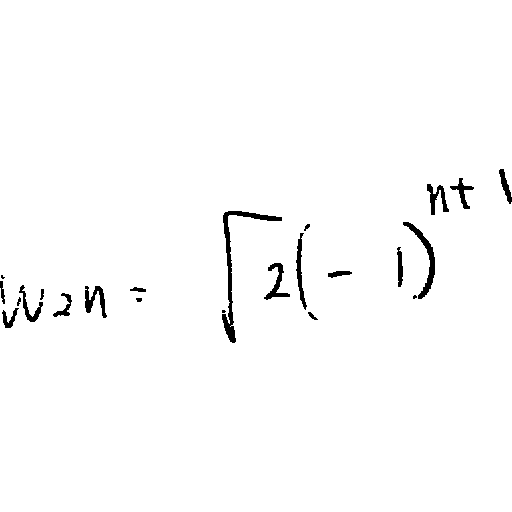 w_{2n} = \sqrt{2}(-1)^{n+1}